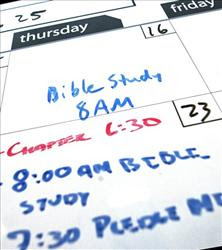 25
thursday
friday
16
Bible Study
8AM
Chapter 6:30
23
8:00 AM BIBLE
STUDY
7:30 PLEDGE